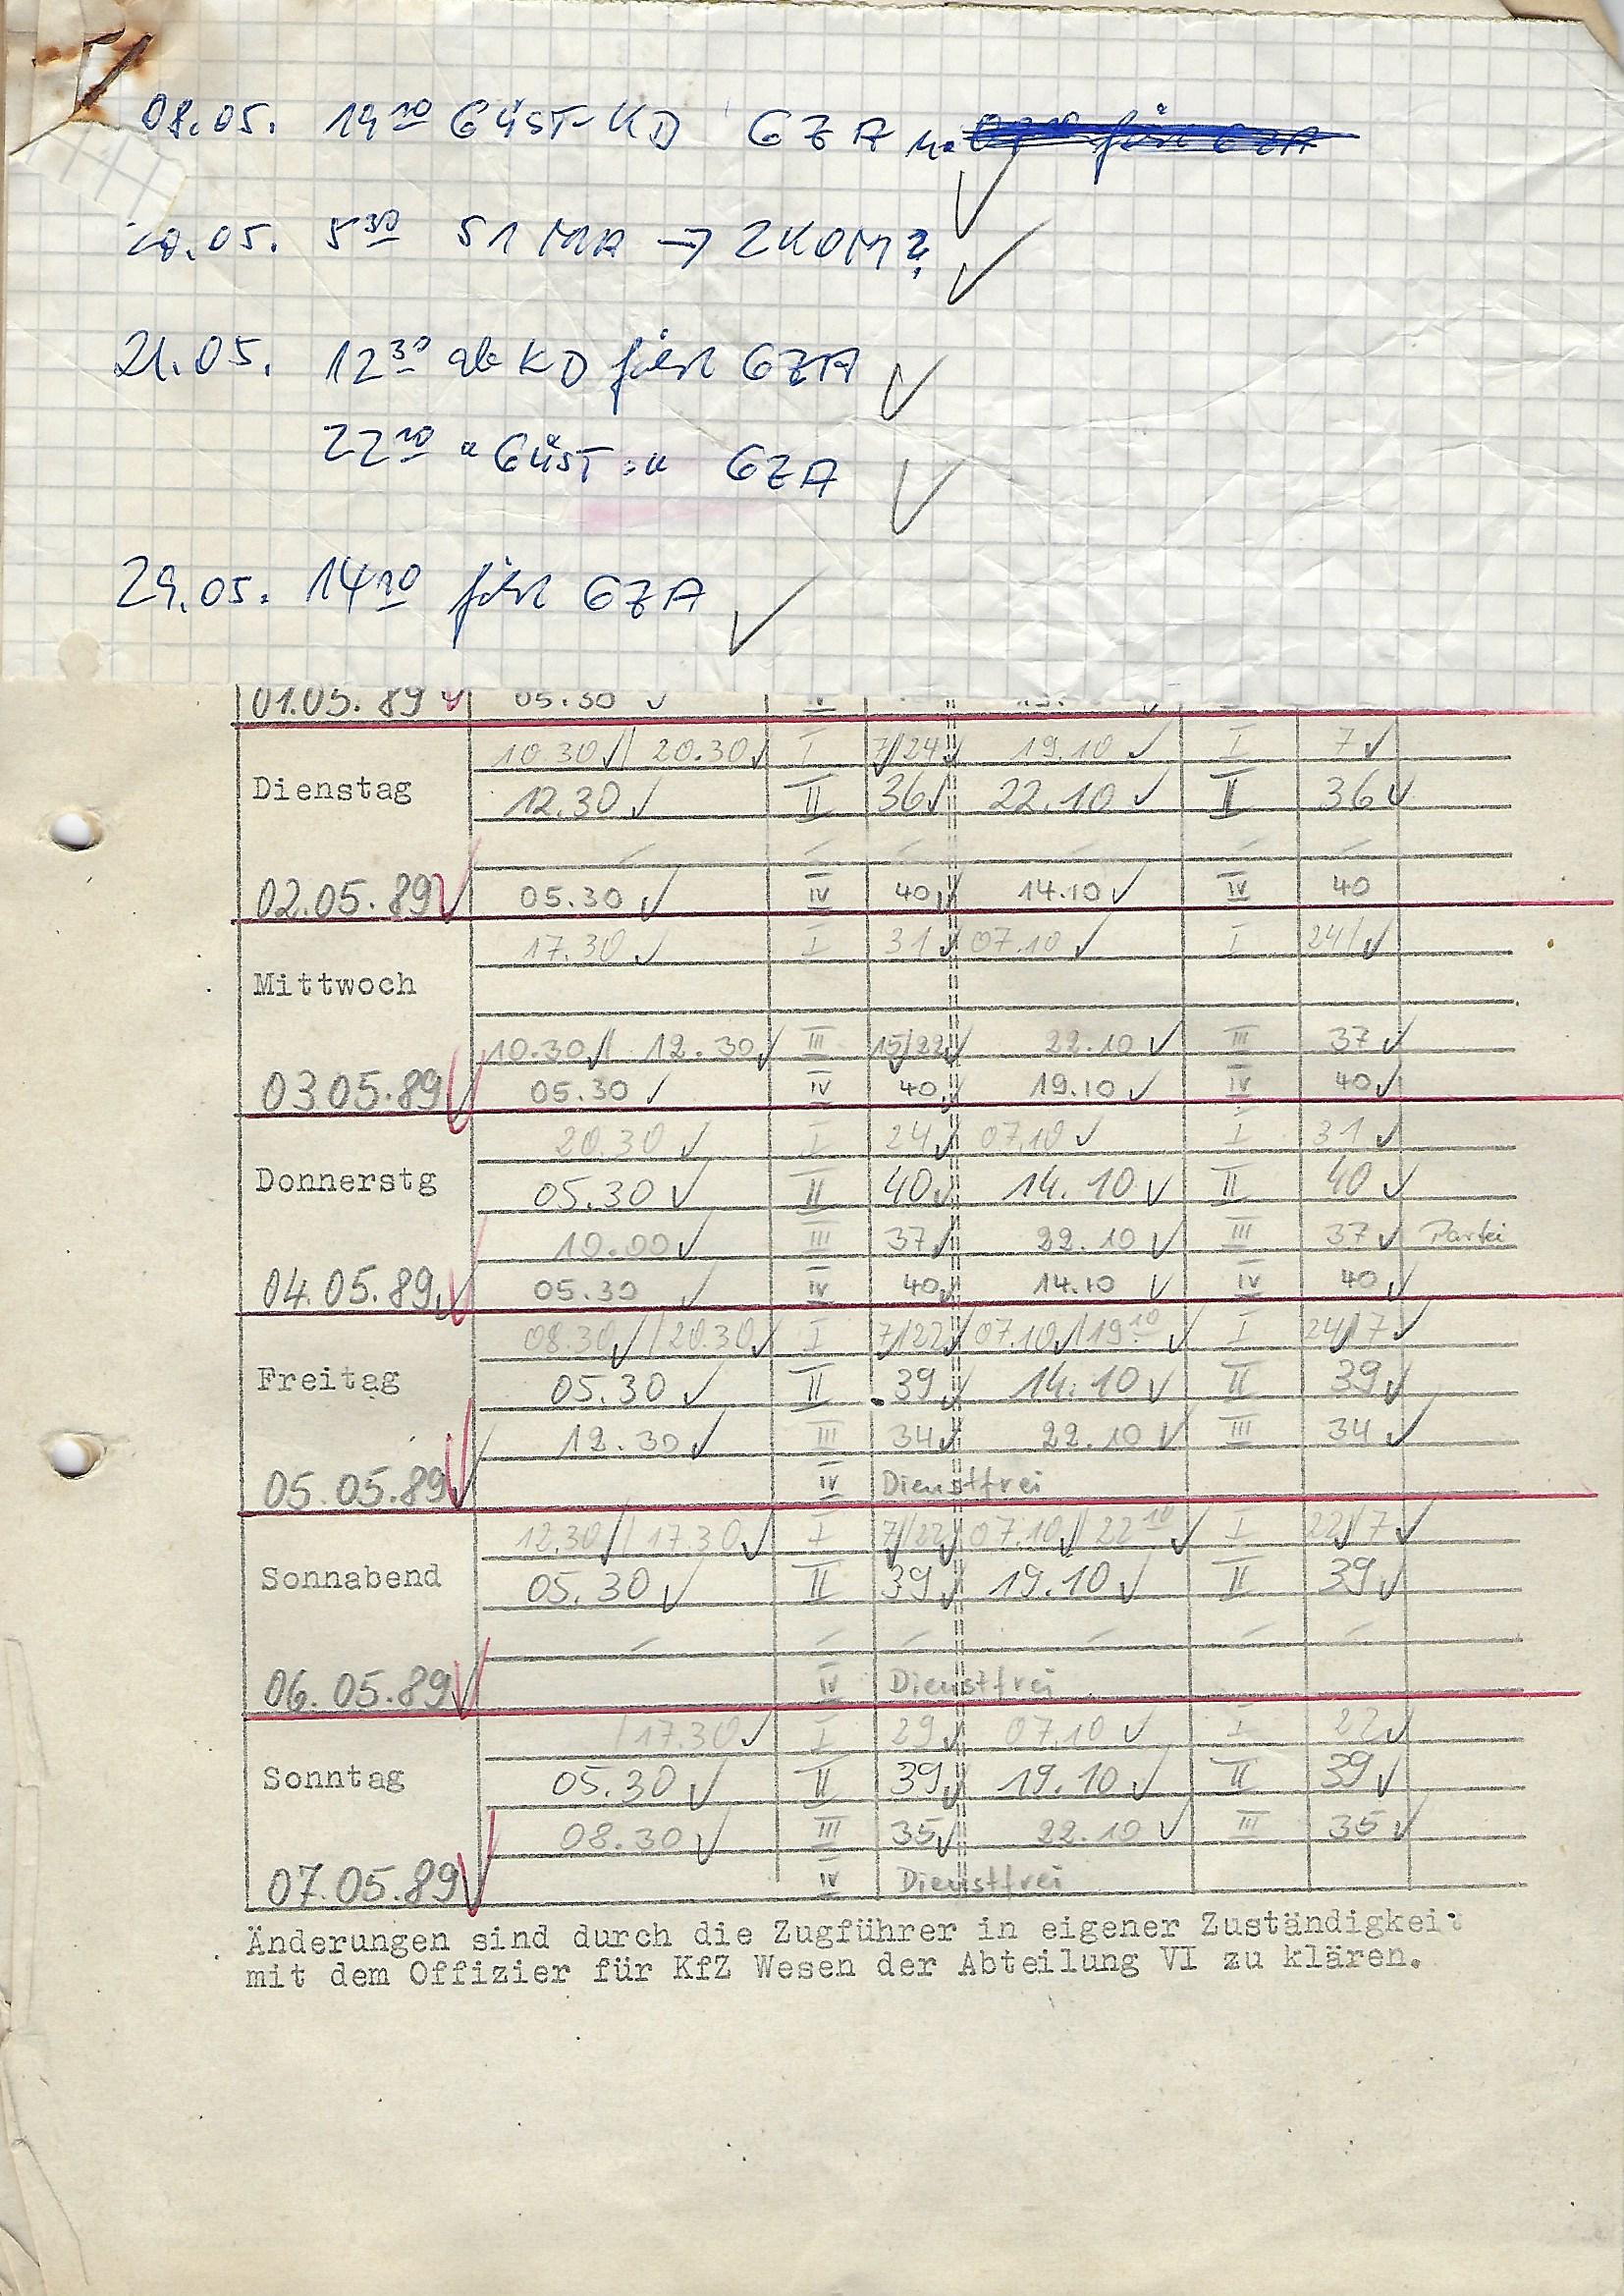 08.05. 14 10 GÜST-KD GZA u.
20.05. 5 30 51 MA → 2 KOM?
21.05. 12 30 ab KD für GZA
22 10 " GÜST : " GZA
29.05. 14 10 für GZA
01.05.89 05.30 IV
10.30 / 20.30 I 7/24 19.10 I 7
Dienstag 12.30 II 36 22.10 II 36
— — — — — —
02.05.89 05.30 IV 40 14.10 IV 40
17.30 I 31 07.10 I 24/
Mittwoch
10.30 / 12.30 III 15/22 22.10 III 37
03.05.89 05.30 IV 40 19.10 IV 40
20.30 I 24 07.10 I 31
Donnerstg 05.30 II 40 14.10 II 40
10.00 III 37 22.10 III 37 Partei
04.05.89 05.30 IV 40 14.10 IV 40
08.30 / 20.30 I 7/22 07.10 / 19 10 I 24/7
Freitag 05.30 II 39 14.10 II 39
12.30 III 34 22.10 III 34
05.05.89 IV Dienstfrei
12.30 / 17.30 I 7/22 07.10 / 22 10 I 22/7
Sonnabend 05.30 II 39 19.10 II 39
— — — — — —
06.05.89 IV Dienstfrei
/ 17.30 I 29 07.10 I 22
Sonntag 05.30 II 39 19.10 II 39
08.30 III 35 22.10 III 35
07.05.89 IV Dienstfrei
Änderungen sind durch die Zugführer in eigener Zuständigkeit
mit dem Offizier für KfZ Wesen der Abteilung VI zu klären.